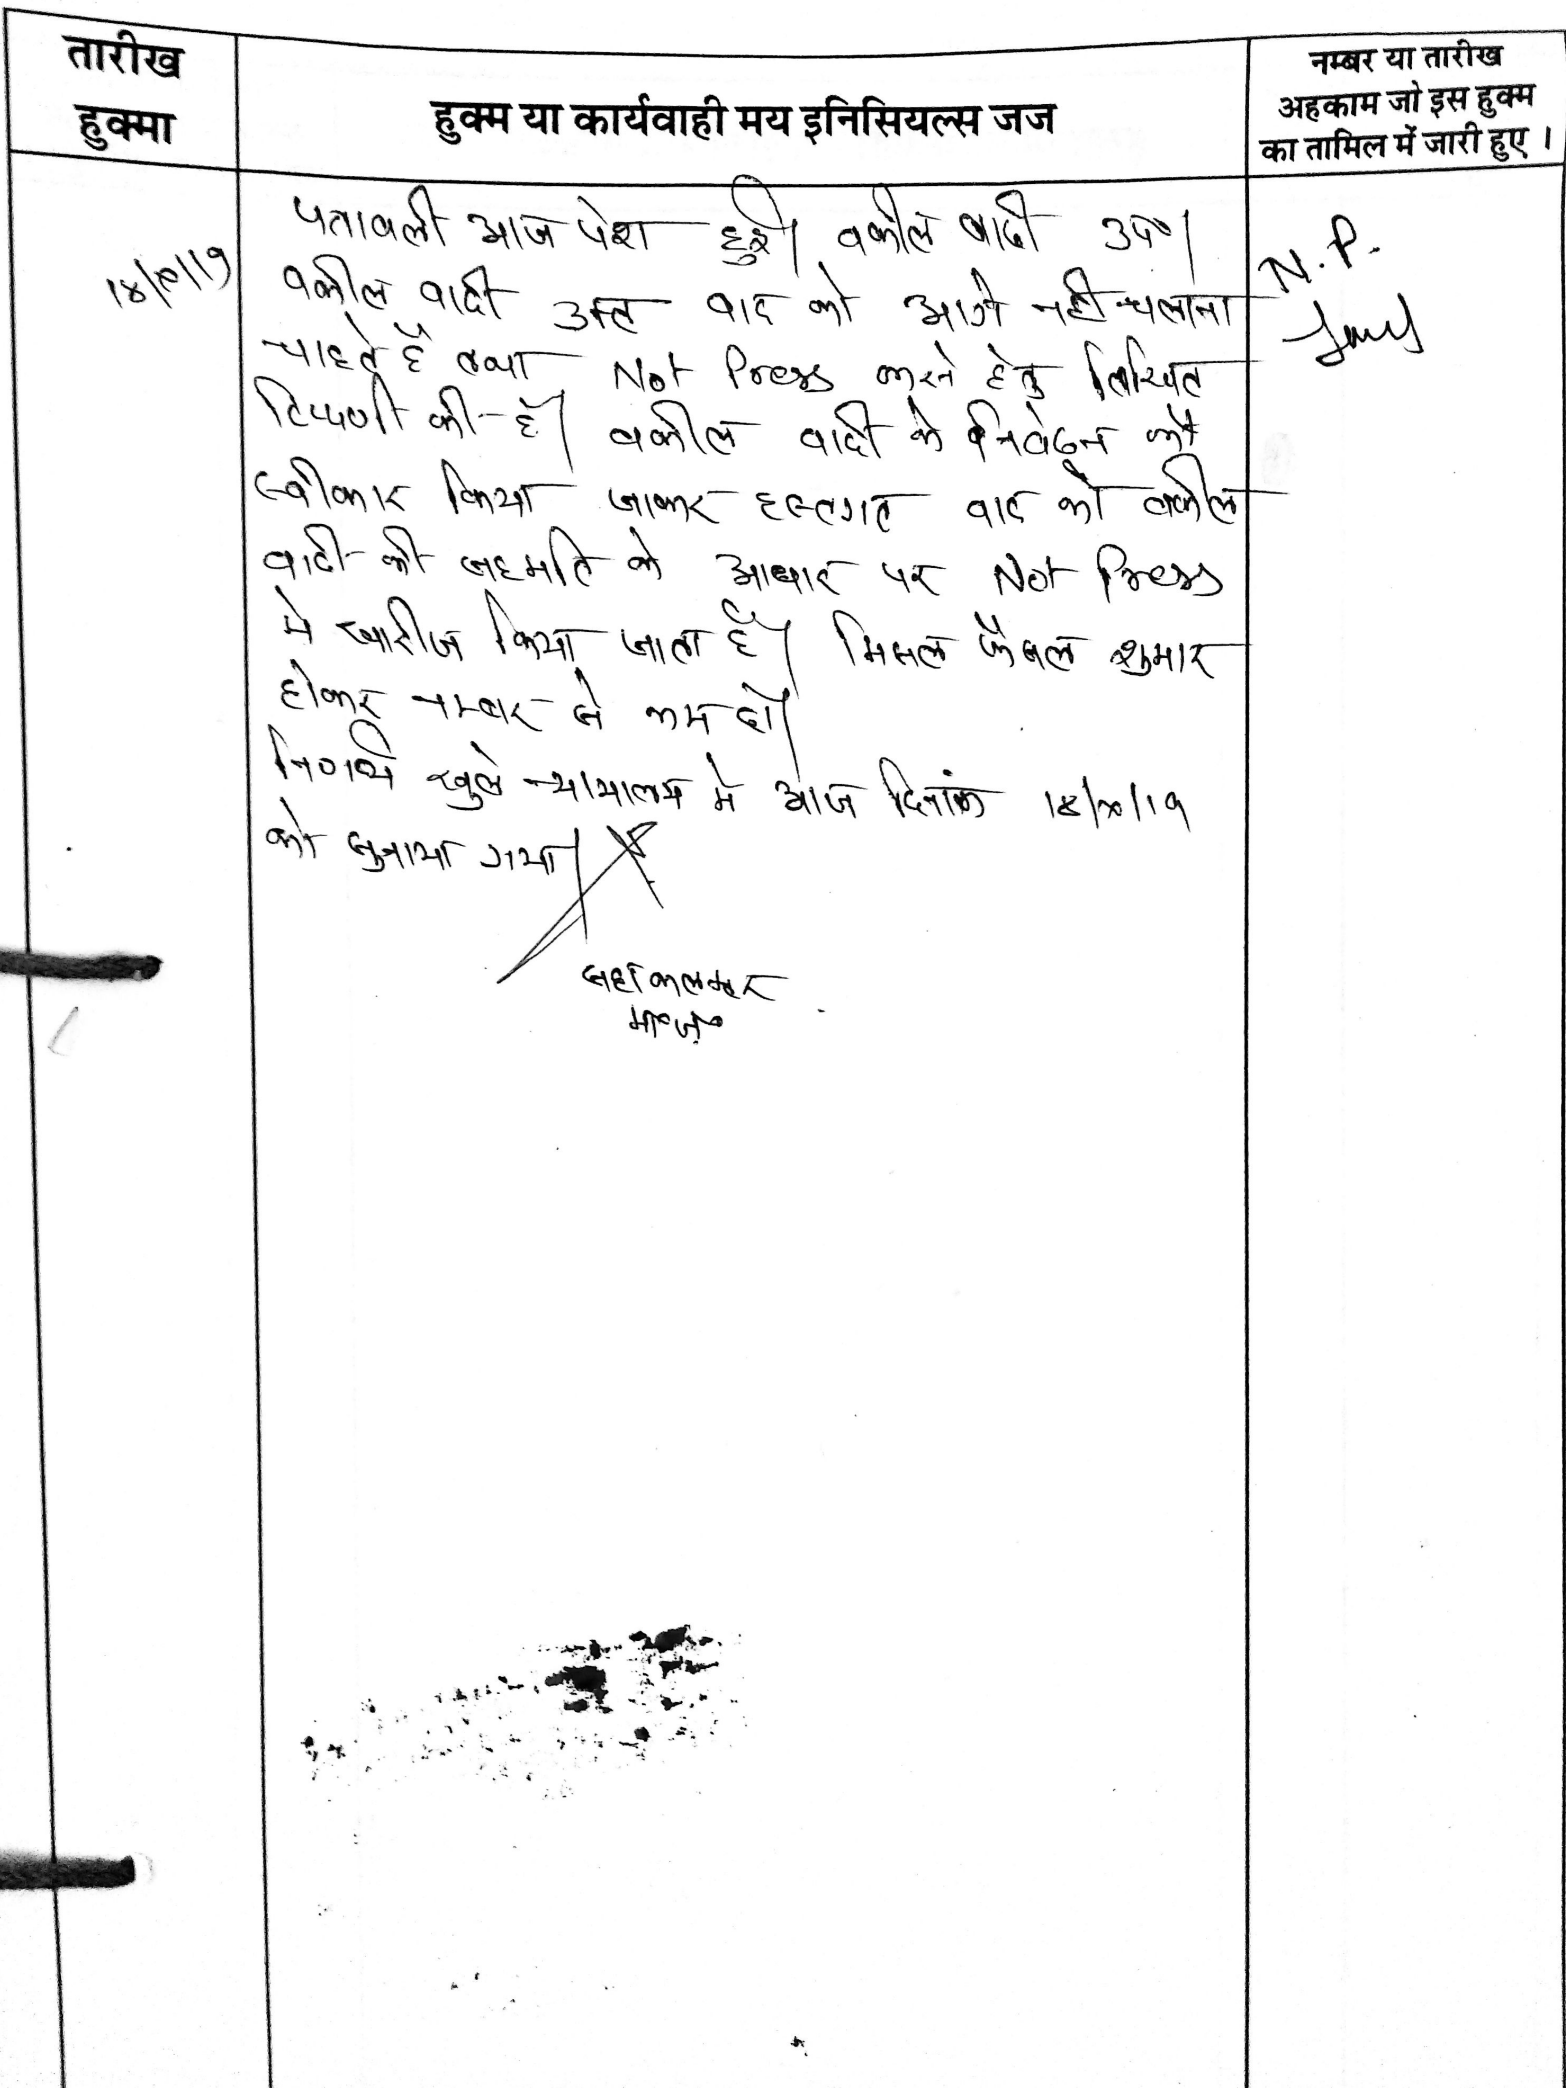 तारीख
हुक्मा
हुक्म या कार्यवाही मय इनिसियल्स जज
नम्बर या तारीख
अहकाम जो इस हुक्म
का तामिल में जारी हुए ।
पत्रावली आज पेश हुई। वकील वादी उप०।
वकील वादी उक्त वाद को आगे नही चलाना
चाहते है तथा Not Press करने हेतु लिखित
टिप्पणी की है। वकील वादी के निवेदन को
स्वीकार किया जाकर हस्तगत वाद को वकील
वादी की सहमति के आधार पर Not Press
मे खारीज किया जाता है। मिसल फैसल शुमार
होकर नम्बर से कम हो।
निर्णय खुले न्यायालय मे आज दिनांक
को सुनाया गया।
सहा कलक्टर
N. P.